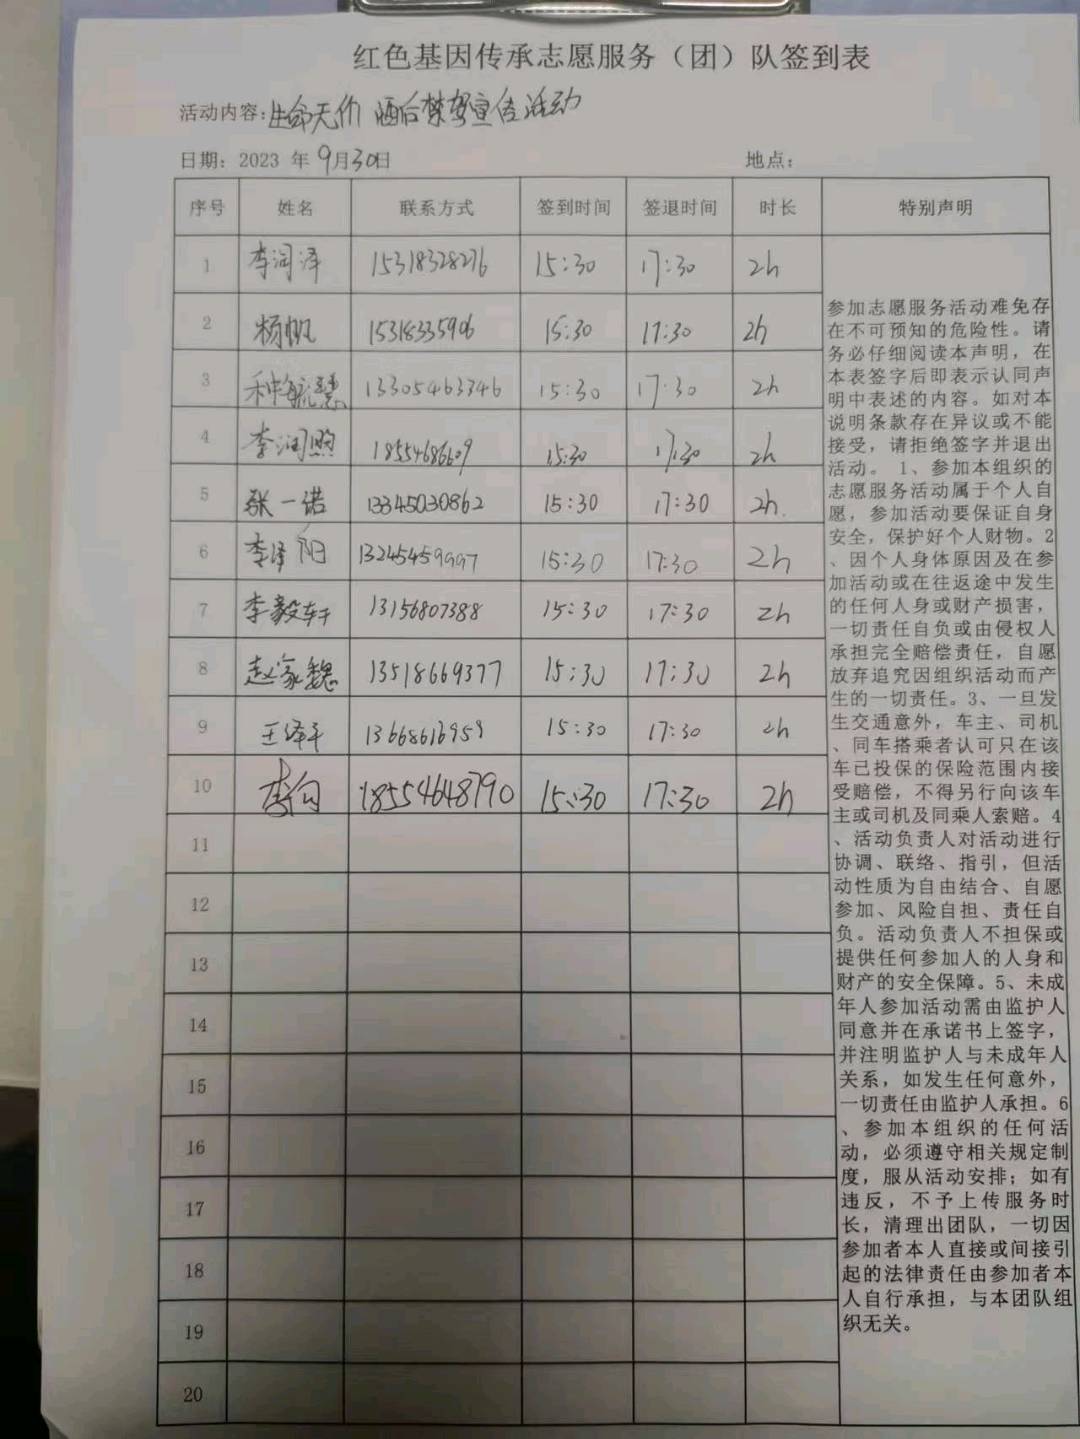 红色基因传承志愿服务（团）队签到表
活动内容：生命无价 酒后禁驾宣传活动
日期：2023 年 9月30日 地点：
序号 姓名 联系方式 签到时间 签退时间 时长 特别声明
1 李润泽 15318328276 15:30 17:30 2h
2 杨帆 15318335906 15:30 17:30 2h
3 种毓慧 13305463346 15:30 17:30 2h
4 李润煦 18554686609 15:30 17:30 2h
5 张一诺 13345030862 15:30 17:30 2h
6 李泽阳 13245459997 15:30 17:30 2h
7 李毅轩 13156807388 15:30 17:30 2h
8 赵家魏 13518669377 15:30 17:30 2h
9 王泽平 13668616959 15:30 17:30 2h
10 李勾 18554648790 15:30 17:30 2h
11
12
13
14
15
16
17
18
19
20
参加志愿服务活动难免存
在不可预知的危险性。请
务必仔细阅读本声明，在
本表签字后即表示认同声
明中表述的内容。如对本
说明条款存在异议或不能
接受，请拒绝签字并退出
活动。 1、参加本组织的
志愿服务活动属于个人自
愿，参加活动要保证自身
安全，保护好个人财物。2
、因个人身体原因及在参
加活动或在往返途中发生
的任何人身或财产损害，
一切责任自负或由侵权人
承担完全赔偿责任，自愿
放弃追究因组织活动而产
生的一切责任。3、一旦发
生交通意外，车主、司机
、同车搭乘者认可只在该
车已投保的保险范围内接
受赔偿，不得另行向该车
主或司机及同乘人索赔。4
、活动负责人对活动进行
协调、联络、指引，但活
动性质为自由结合、自愿
参加、风险自担、责任自
负。活动负责人不担保或
提供任何参加人的人身和
财产的安全保障。5、未成
年人参加活动需由监护人
同意并在承诺书上签字，
并注明监护人与未成年人
关系，如发生任何意外，
一切责任由监护人承担。6
、参加本组织的任何活
动，必须遵守相关规定制
度，服从活动安排；如有
违反，不予上传服务时
长，清理出团队，一切因
参加者本人直接或间接引
起的法律责任由参加者本
人自行承担，与本团队组
织无关。